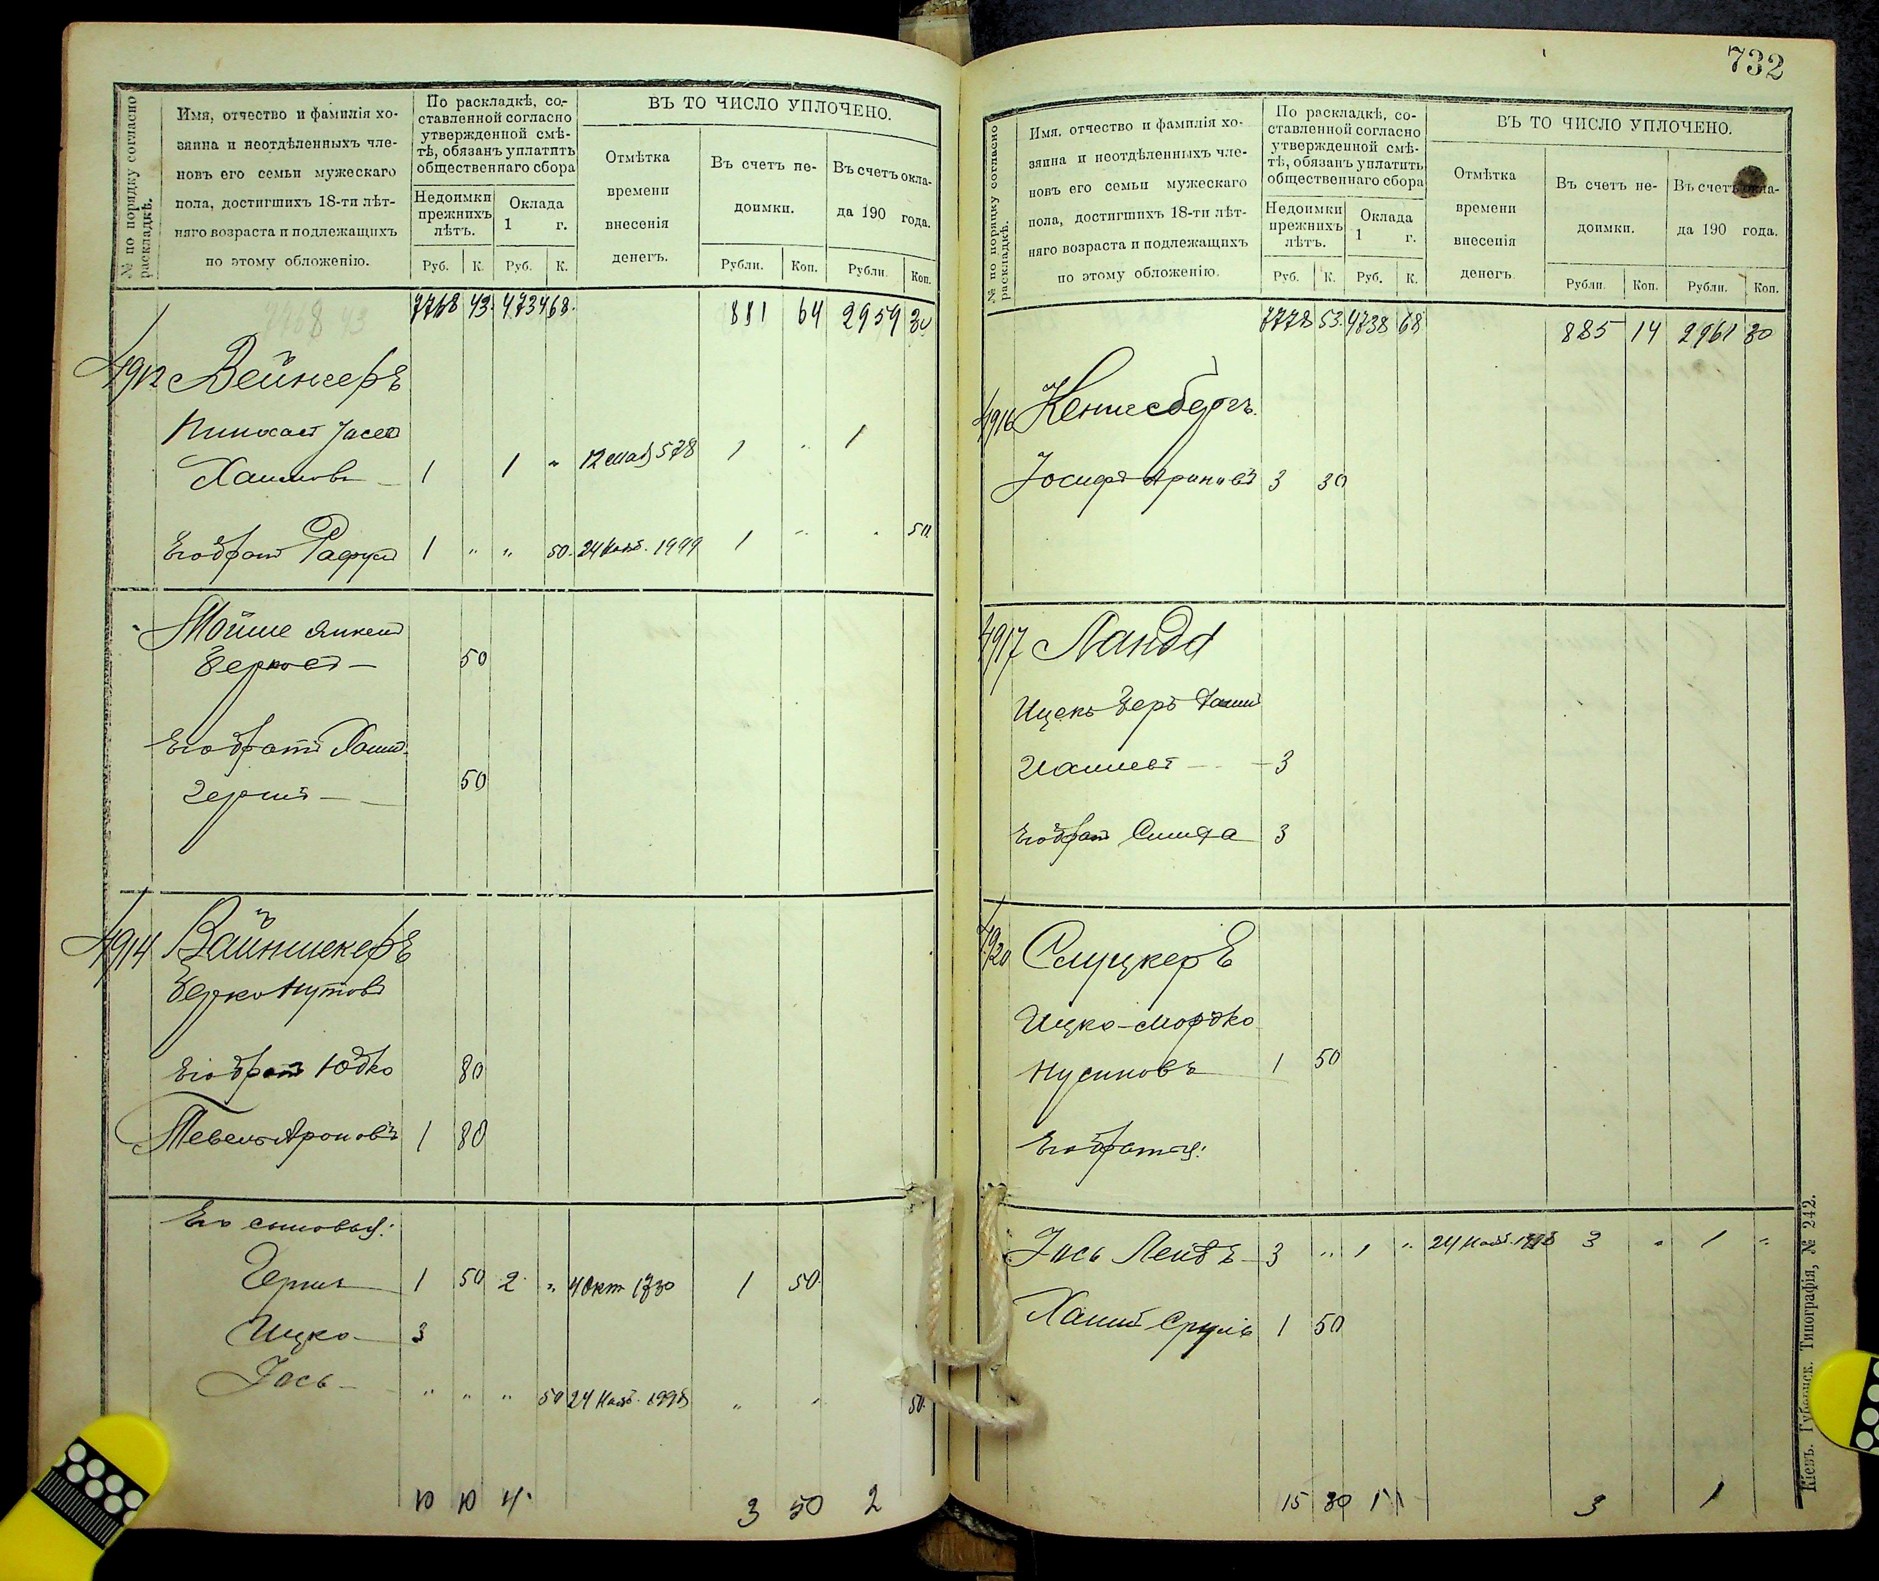 № по порядку согласно раскладкѣ.
Имя, отчество и фамилія хо-
зяина и неотдѣленныхъ чле-
новъ его семьи мужескаго
пола, достигшихъ 18-ти лѣт-
няго возраста и подлежащихъ
по этому обложенію.
По раскладкѣ, со-
ставленной согласно
утвержденной смѣ-
тѣ, обязанъ уплатить
общественнаго сбора
Недоимки
прежнихъ
лѣтъ.
Оклада
1 г.
Руб. К. Руб. К.
ВЪ ТО ЧИСЛО УПЛОЧЕНО.
Отмѣтка
времени
внесенія
денегъ.
Въ счетъ не-
доимки.
Въ счетъ окла-
да 190 года.
Рубли. Коп. Рубли Коп.
7768 43. 4734 68. 881 64 2959 30
4912 Вейнеръ
Пинхасъ Іосев
Хаимовъ 1 1 " 12 май 578 1 " 1
Его братъ Рафул 1 " " 50. 24 Нояб. 1999 1 " . 50
Мойше Янкель
Берковъ 50
Его братъ Хаим
Герш 50
4914 Вайншкеръ
Берко Нутовъ
Его братъ Юдко 80
Тевель Ароновъ 1 80
Его сыновья:
Герш 1 50 2 " 4 Окт 1730 1 50
Ицко 3
Іось " " " 50 24 Нояб. 1998 " " 50.
10 10 4 3 50 2
732
№ по порядку согласно раскладкѣ.
Имя, отчество и фамилія хо-
зяина и неотдѣленныхъ чле-
новъ его семьи мужескаго
пола, достигшихъ 18-ти лѣт-
няго возраста и подлежащихъ
по этому обложенію.
По раскладкѣ, со-
ставленной согласно
утвержденной смѣ-
тѣ, обязанъ уплатить
общественнаго сбора
Недоимки
прежнихъ
лѣтъ.
Оклада
1 г.
Руб. К. Руб. К.
ВЪ ТО ЧИСЛО УПЛОЧЕНО.
Отмѣтка
времени
внесенія
денегъ
Въ счетъ не-
доимки.
Въ счетъ окла-
да 190 года.
Рубли Коп. Рубли. Коп.
7778 53. 4738 68 885 14 2961 30
4916 Кенигсбергъ.
Іосифъ Ароновъ 3 30
4917 Ланда
Ицекъ Беръ Хаим
3
Его братъ Симха 3
4920 Слуцкеръ
Ицко-Мордко
Нусиновъ 1 50
Его братья:
Іось Лейбъ 3 " 1 " 24 Нояб. 3 " 1 "
Хаим Сруль 1 50
15 30 1 3 1
Кіевъ. Губернск. Типографія, № 242.